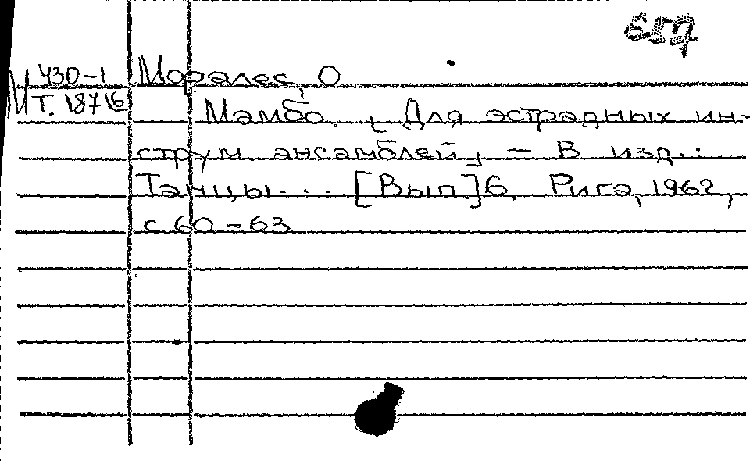 657
М У30-1 Моралес, О.
Т. 18716 Мамбо. [Для эстрадных ин-
струм. ансамблей]. – В изд.:
Танцы... [Вып.] 6. Рига, 1962,
с. 60-63